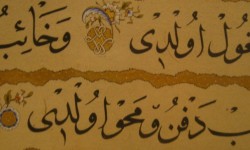 غول اولدى وخائب
ب دفن و محو اولدى